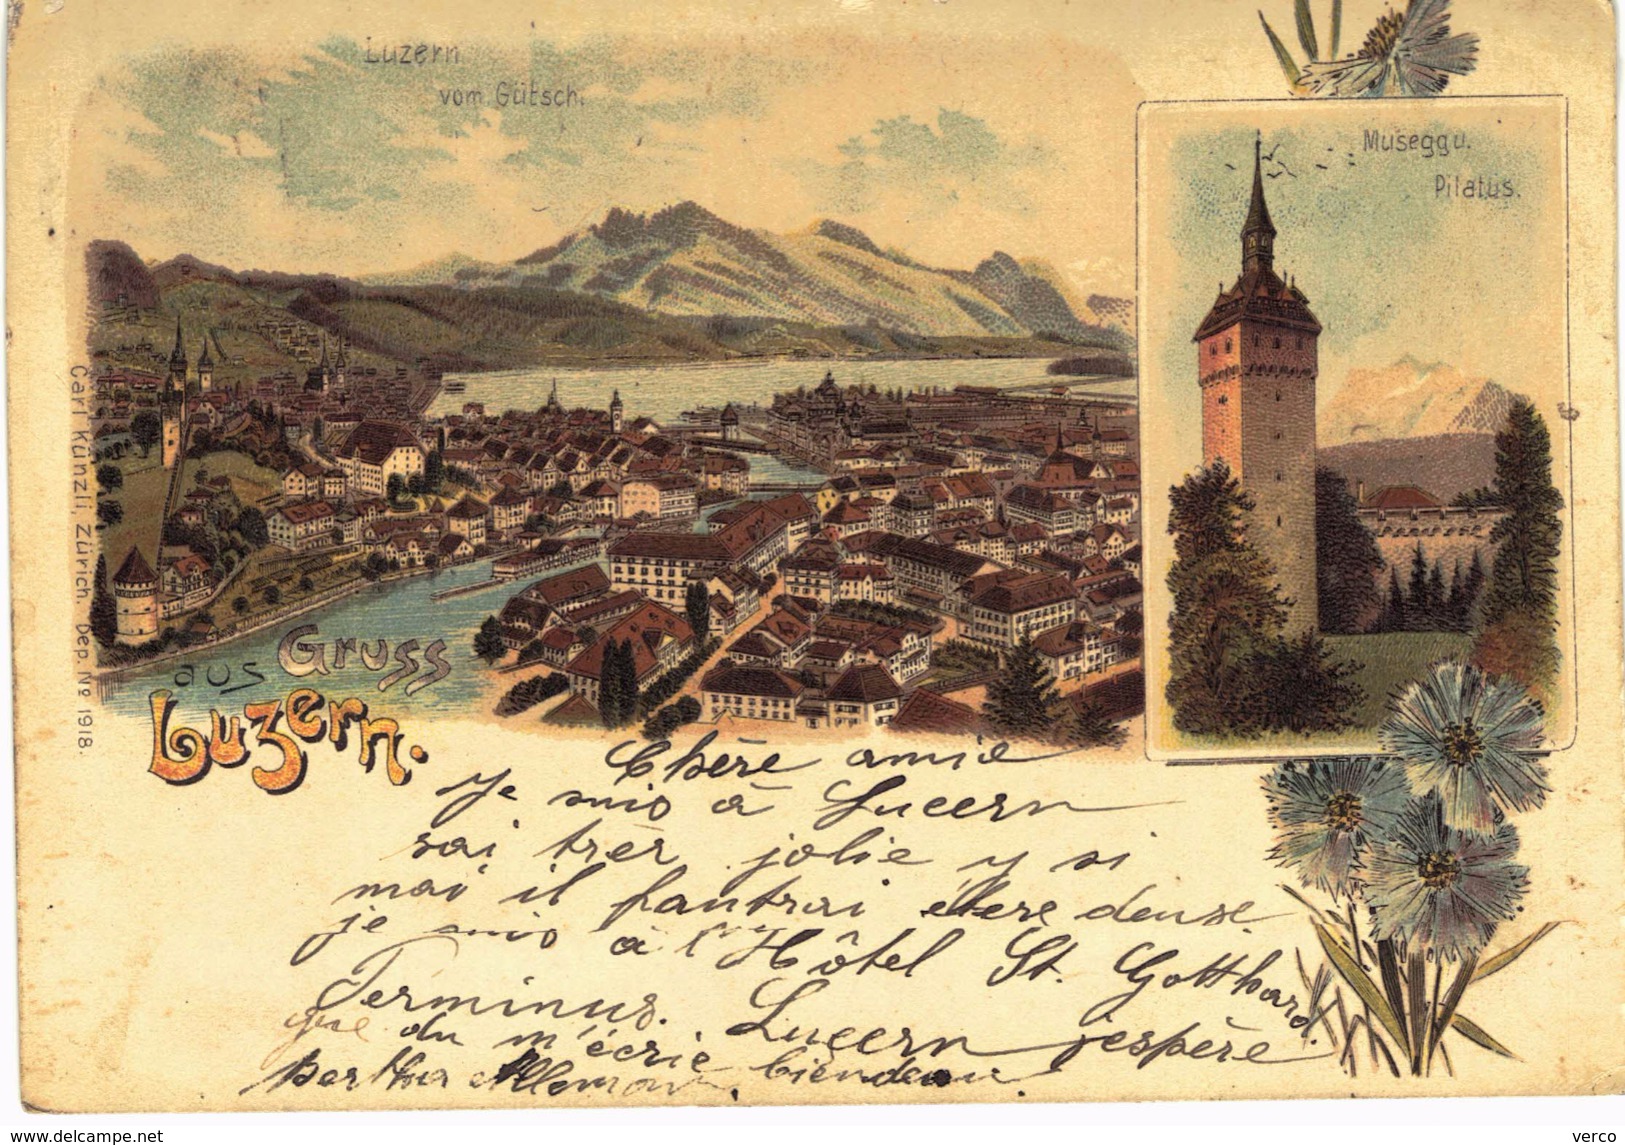 Luzern
vom Gütsch.
Museggu.
Pilatus.
Carl Künzli, Zürich. Dep. No 1918.
Gruss
aus
Luzern.
Chère amie
Je suis à Lucern
sai trèr jolie y si
mai il fautrai étere deuse
je suis à l'Hôtel St. Gotthard
Terminus. Lucern jespère
que du m'écrie biendeau
Bertha Allemann.
www.delcampe.net
verco